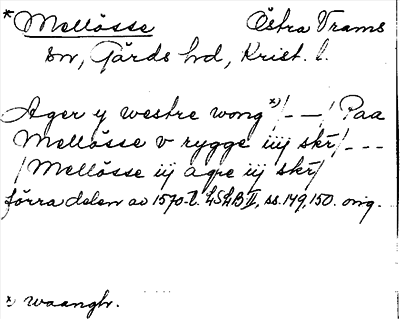 *Mellösse Östra Vrams
sn, Gärds hd, Krist. l.
Ager y westre wong *)/- -/ Paa
Mellösse v rygge iiij skr/ - - -
/Mellösse iij agre iij skr/
förra delen av 1570-t. LSLB II, ss. 149, 150. orig.
*) waangh.